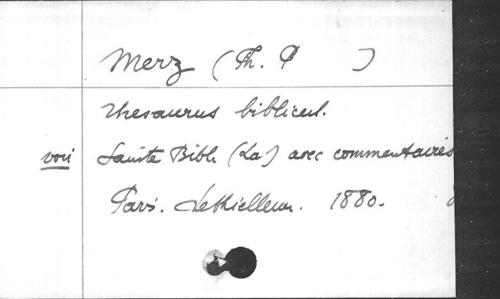 Merz (Th. P )
Thesaurus biblicus.
voir Sainte Bible (La) avec commentaires
Paris. Lethielleux. 1880.